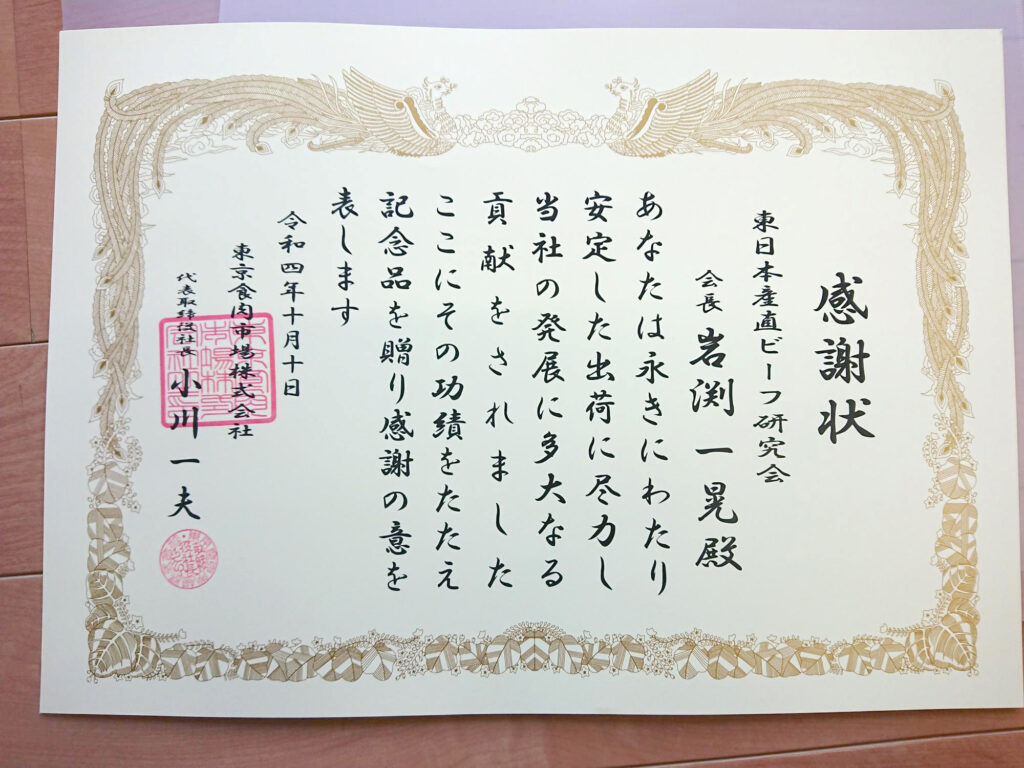 感謝状
東日本産直ビーフ研究会
会長 岩渕 一晃 殿
あなたは永きにわたり
安定した出荷に尽力し
当社の発展に多大なる
貢献をされました
ここにその功績をたたえ
記念品を贈り感謝の意を
表します
令和四年十月十日
東京食肉市場株式会社
代表取締役社長 小川 一夫